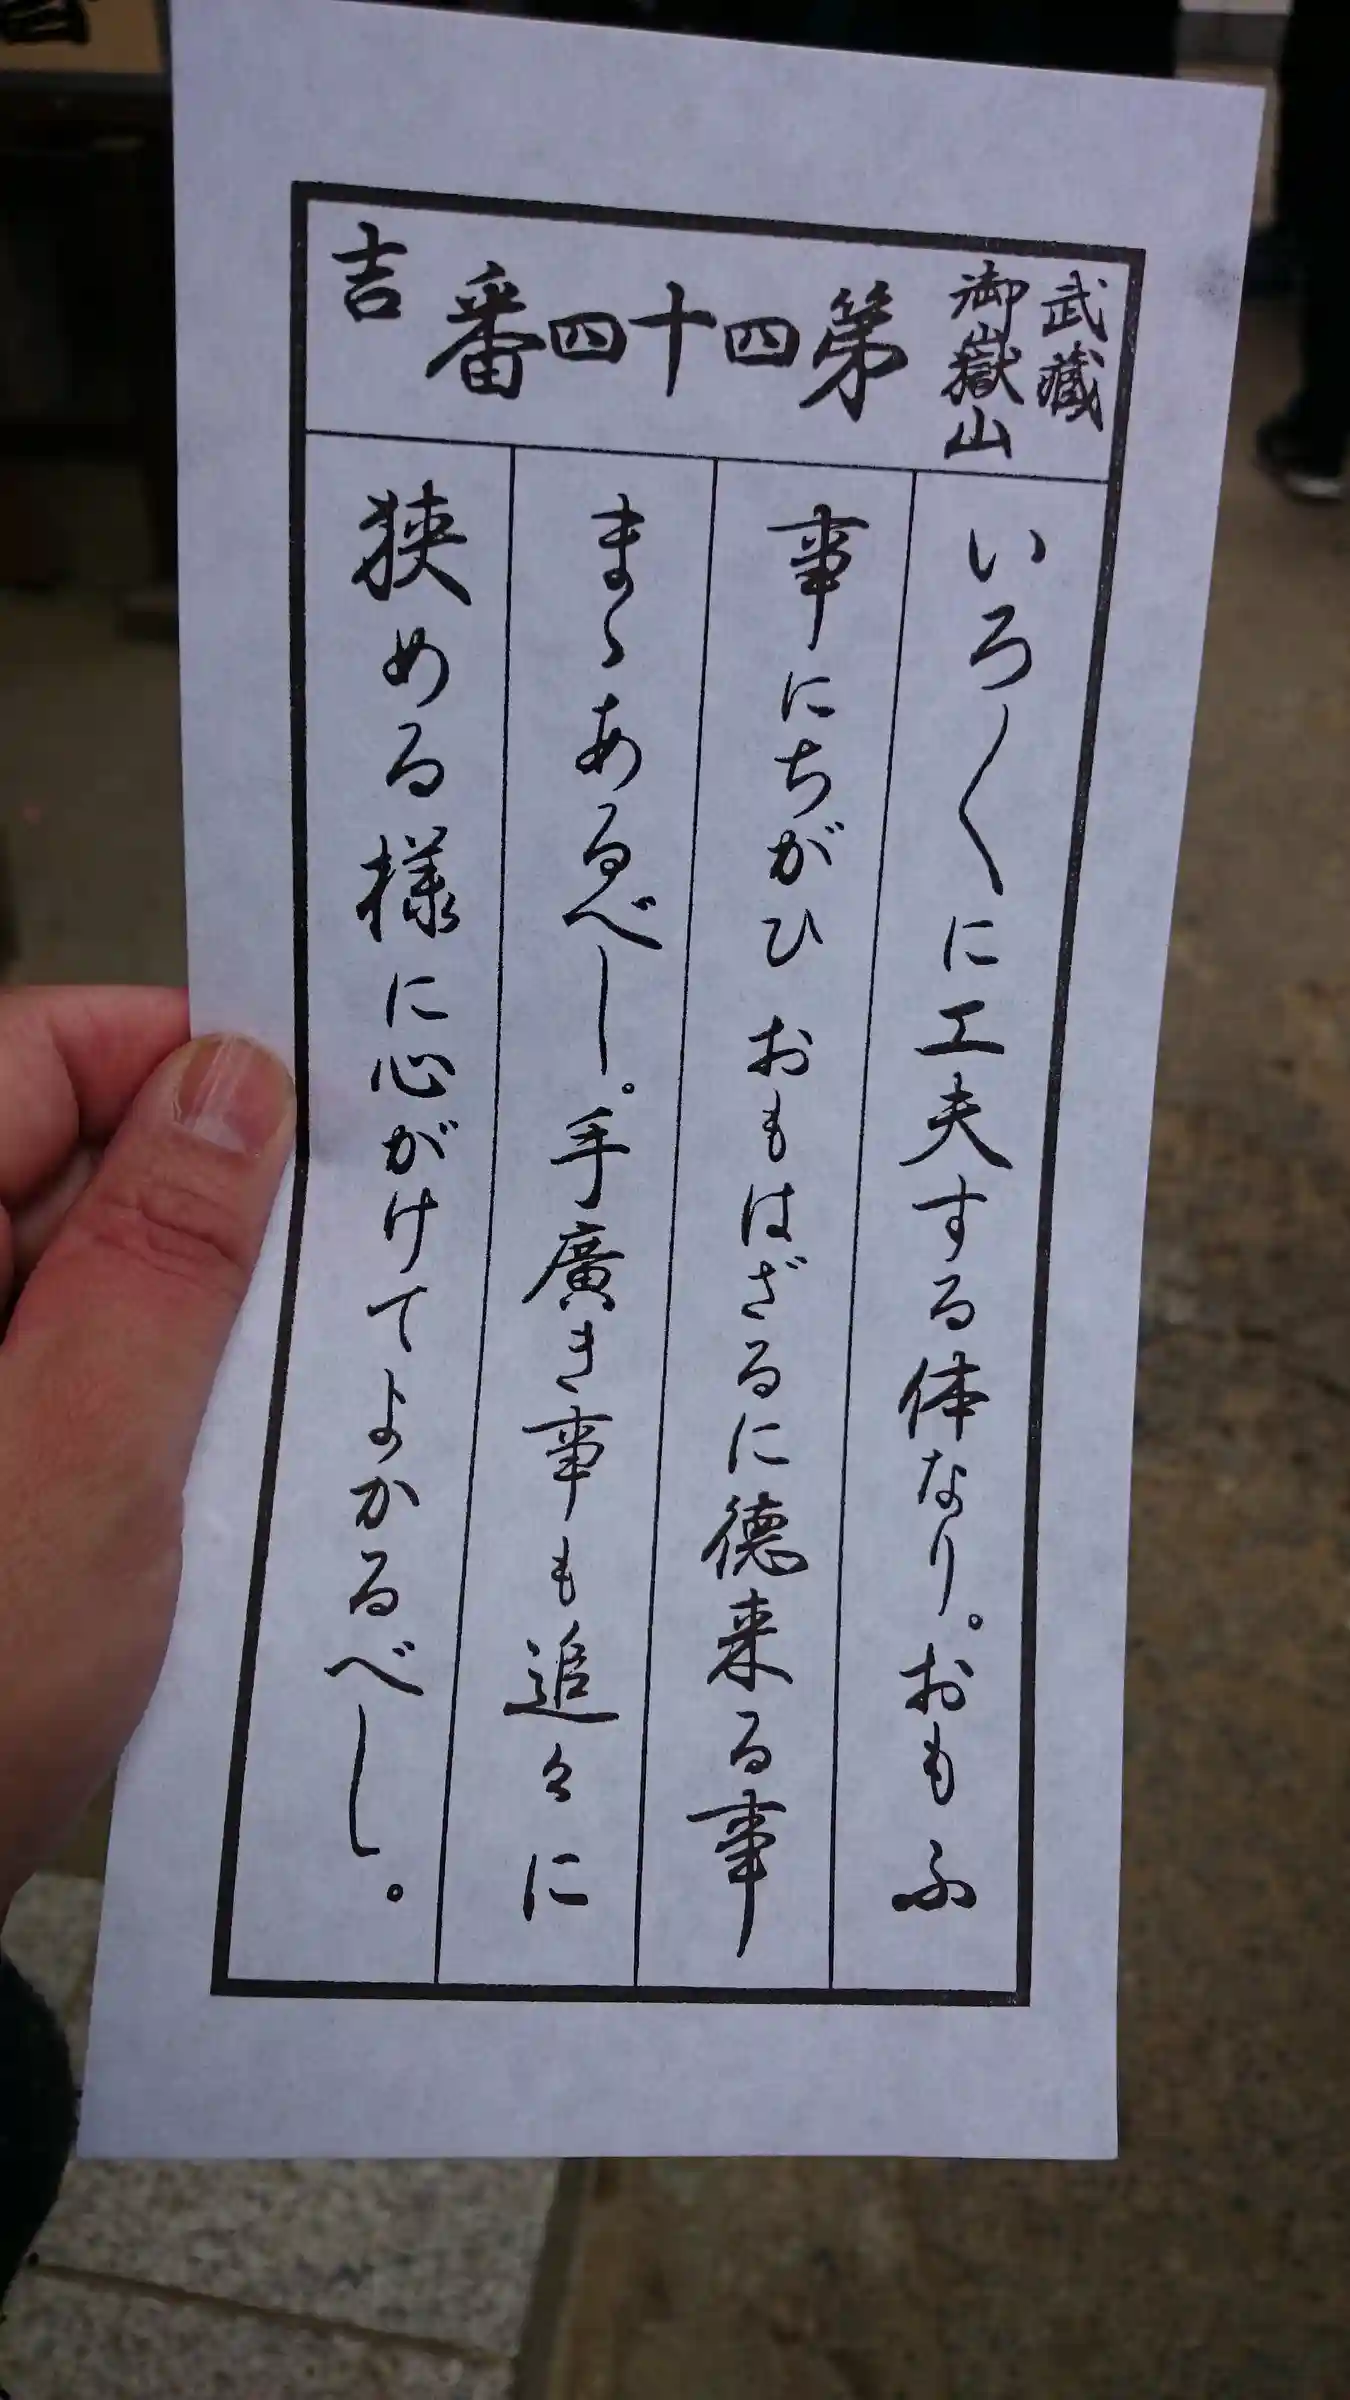 武蔵
御嶽山
第四十四番
吉
いろ〳〵に工夫する体なり。おもふ
事にちがひおもはざるに徳来る事
まゝあるべし。手廣き事も追々に
狭める様に心がけてよかるべし。